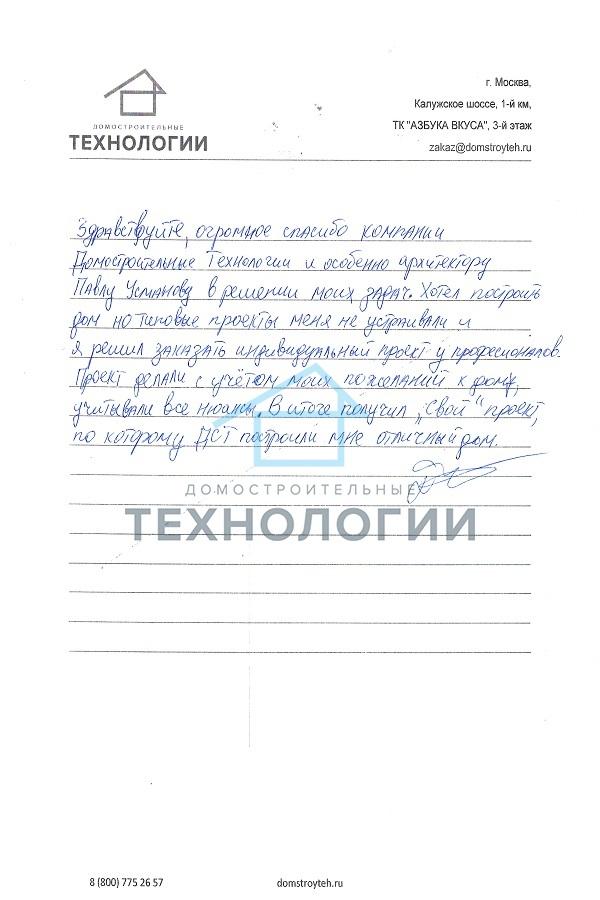 ДОМОСТРОИТЕЛЬНЫЕ
ТЕХНОЛОГИИ
г. Москва,
Калужское шоссе, 1-й км,
ТК "АЗБУКА ВКУСА", 3-й этаж
zakaz@domstroyteh.ru
Здравствуйте, огромное спасибо компании
Домостроительные Технологии и особенно архитектору
Павлу Усманову в решении моих задач. Хотел построить
дом но типовые проекты меня не устраивали и
я решил заказать индивидуальный проект у професионалов.
Проект делали с учётом моих пожеланий к дому,
учитывали все нюансы. В итоге получил „Свой“ проект,
по которому ДСТ построили мне отличный дом.
ДОМОСТРОИТЕЛЬНЫЕ
ТЕХНОЛОГИИ
8 (800) 775 26 57
domstroyteh.ru